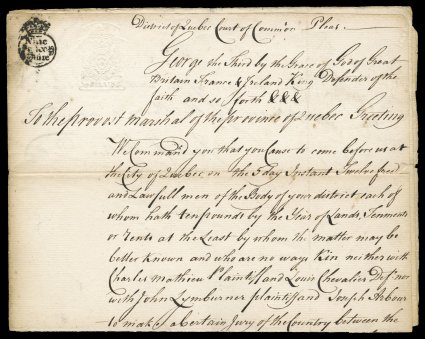 District of Quebec Court of Common Pleas
George the Third by the Grace of God of Great
Britain France & Ireland King Defender of the
faith and so forth &&&
To the provost marshal of the province of Quebec Greeting
We Command you that you Cause to come before us at
the City of Quebec on the 5 day Instant Twelve free
and Lawfull men of the Body of your district each of
whom hath ten pounds by the Year of Lands Tenments
or Rents at the Least by whom the matter may be
better known and who are no ways Kin neither with
Charles Mathieu Plaintiff and Louis Chevalier Def. nor
with John Lymburner plaintiff and Joseph Arbour
to make a Certain Jury of the Country between the